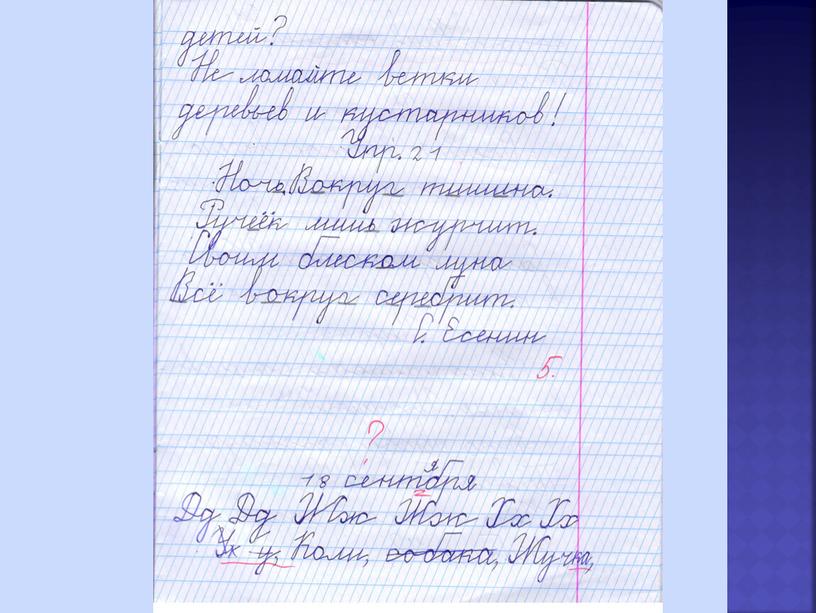 детей?
Не ломайте ветки
деревьев и кустарников!
Упр. 21
Ночь. Вокруг тишина.
Ручеёк лишь журчит.
Своим блеском луна
Всё вокруг серебрит.
С. Есенин
5.
?
18 сентября
Дд Дд Жж Жж Хх Хх
у, Коли, собака, Жучка,